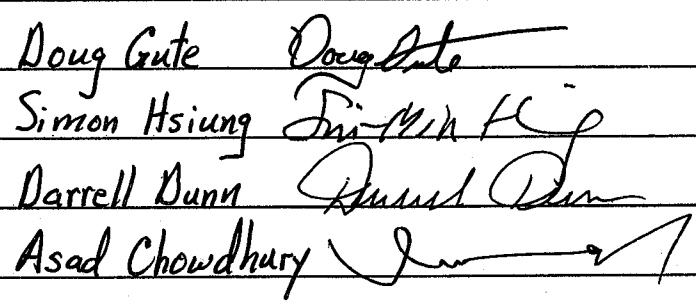 Doug Gute Doug Gute
Simon Hsiung
Darrell Dunn Darrell Dunn
Asad Chowdhury